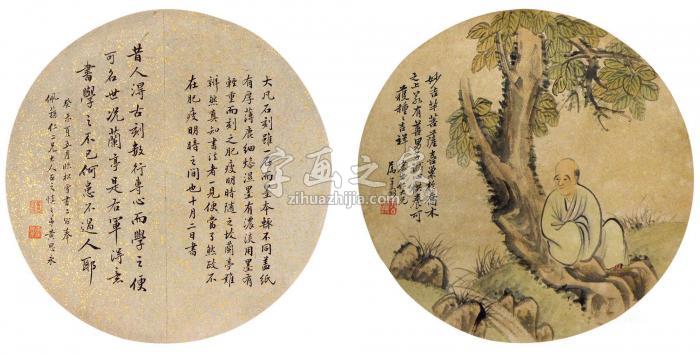 昔人得古刻數行專心而學之便
可名世況蘭亭是右軍得意
書學之不已何患不過人耶
癸未夏五月臨松雪書奉
仁兄大人正之弟黃思永
大凡石刻雖一石而墨本輒不同蓋紙
有厚薄麁細燥濕墨有濃淡用墨有
輕重而刻之肥瘦明暗隨之故蘭亭難
辨然真知書法者一見便當了然政不
在肥瘦明暗之間也十月二日書
妙吉祥菩薩喬木
之上有可
種之吉祥
字画之家
zihuazhijia.com